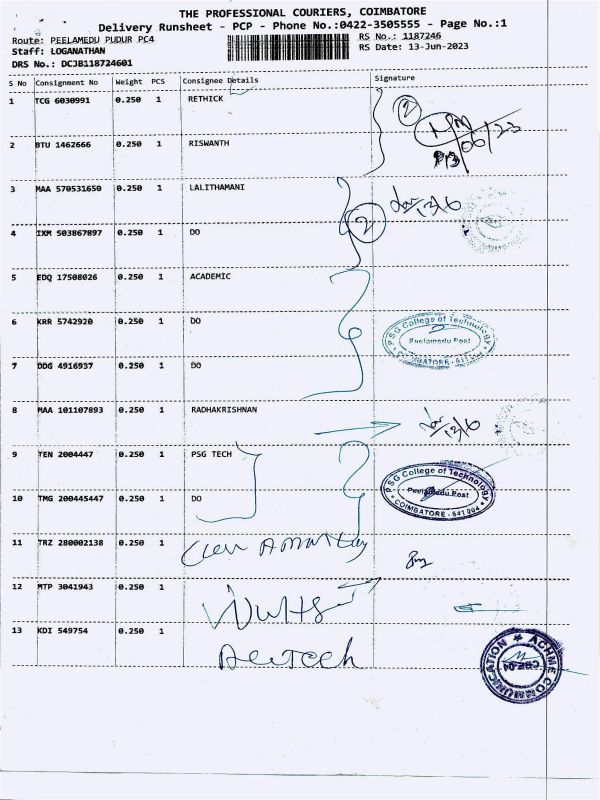 THE PROFESSIONAL COURIERS, COIMBATORE
Delivery Runsheet - PCP - Phone No.:0422-3505555 - Page No.:1
Route: PEELAMEDU PUDUR PC4
RS No.: 1187246
Staff: LOGANATHAN
RS Date: 13-Jun-2023
DRS No.: DCJB118724601
S No Consignment No Weight PCS Consignee Details Signature
1 TCG 6030991 0.250 1 RETHICK 2
2 BTU 1462666 0.250 1 RISWANTH
3 MAA 570531650 0.250 1 LALITHAMANI
4 IXM 503867897 0.250 1 DO 2
5 EDQ 17508026 0.250 1 ACADEMIC
6 KRR 5742920 0.250 1 DO
PSG College of Technology
Peelamedu Post
7 DDG 4916937 0.250 1 DO
8 MAA 101107893 0.250 1 RADHAKRISHNAN
9 TEN 2004447 0.250 1 PSG TECH
PSG College of Technology
Peelamedu Post
COIMBATORE - 641 004
10 TMG 200445447 0.250 1 DO
11 TRZ 280002138 0.250 1
12 MTP 3041943 0.250 1
13 KDI 549754 0.250 1
ACHME COMMUNICATION